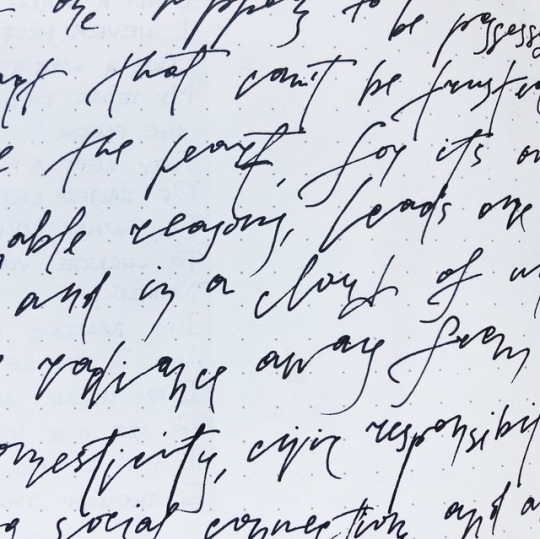 to be possess
that can't be trust
the heart, for it's
able reasons, leads one
and in a cloud of
radiance away from
omesticity, civic responsibi
social connection and a